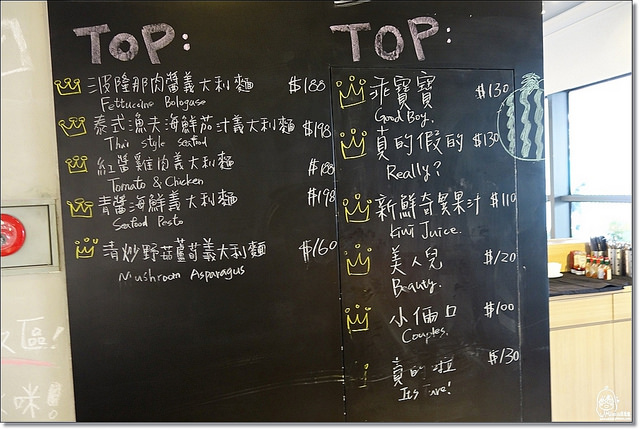 TOP:
波隆那肉醬義大利麵 $188
Fettuccine Bologase
泰式漁夫海鮮茄汁義大利麵 $198
Thai style seafood
紅醬雞肉義大利麵 $188
Tomato & Chicken
青醬海鮮義大利麵 $198
Seafood Pesto
清炒野菇蘆荀義大利麵 $160
Mushroom Asparagus
TOP:
乖寶寶 $130
Good Boy.
真的假的 $130
Really?
新鮮奇異果汁 $110
Kiwi Juice.
美人兒 $120
Beauty.
小倆口 $100
Couples.
真的啦 $130
Its
區!
咪!